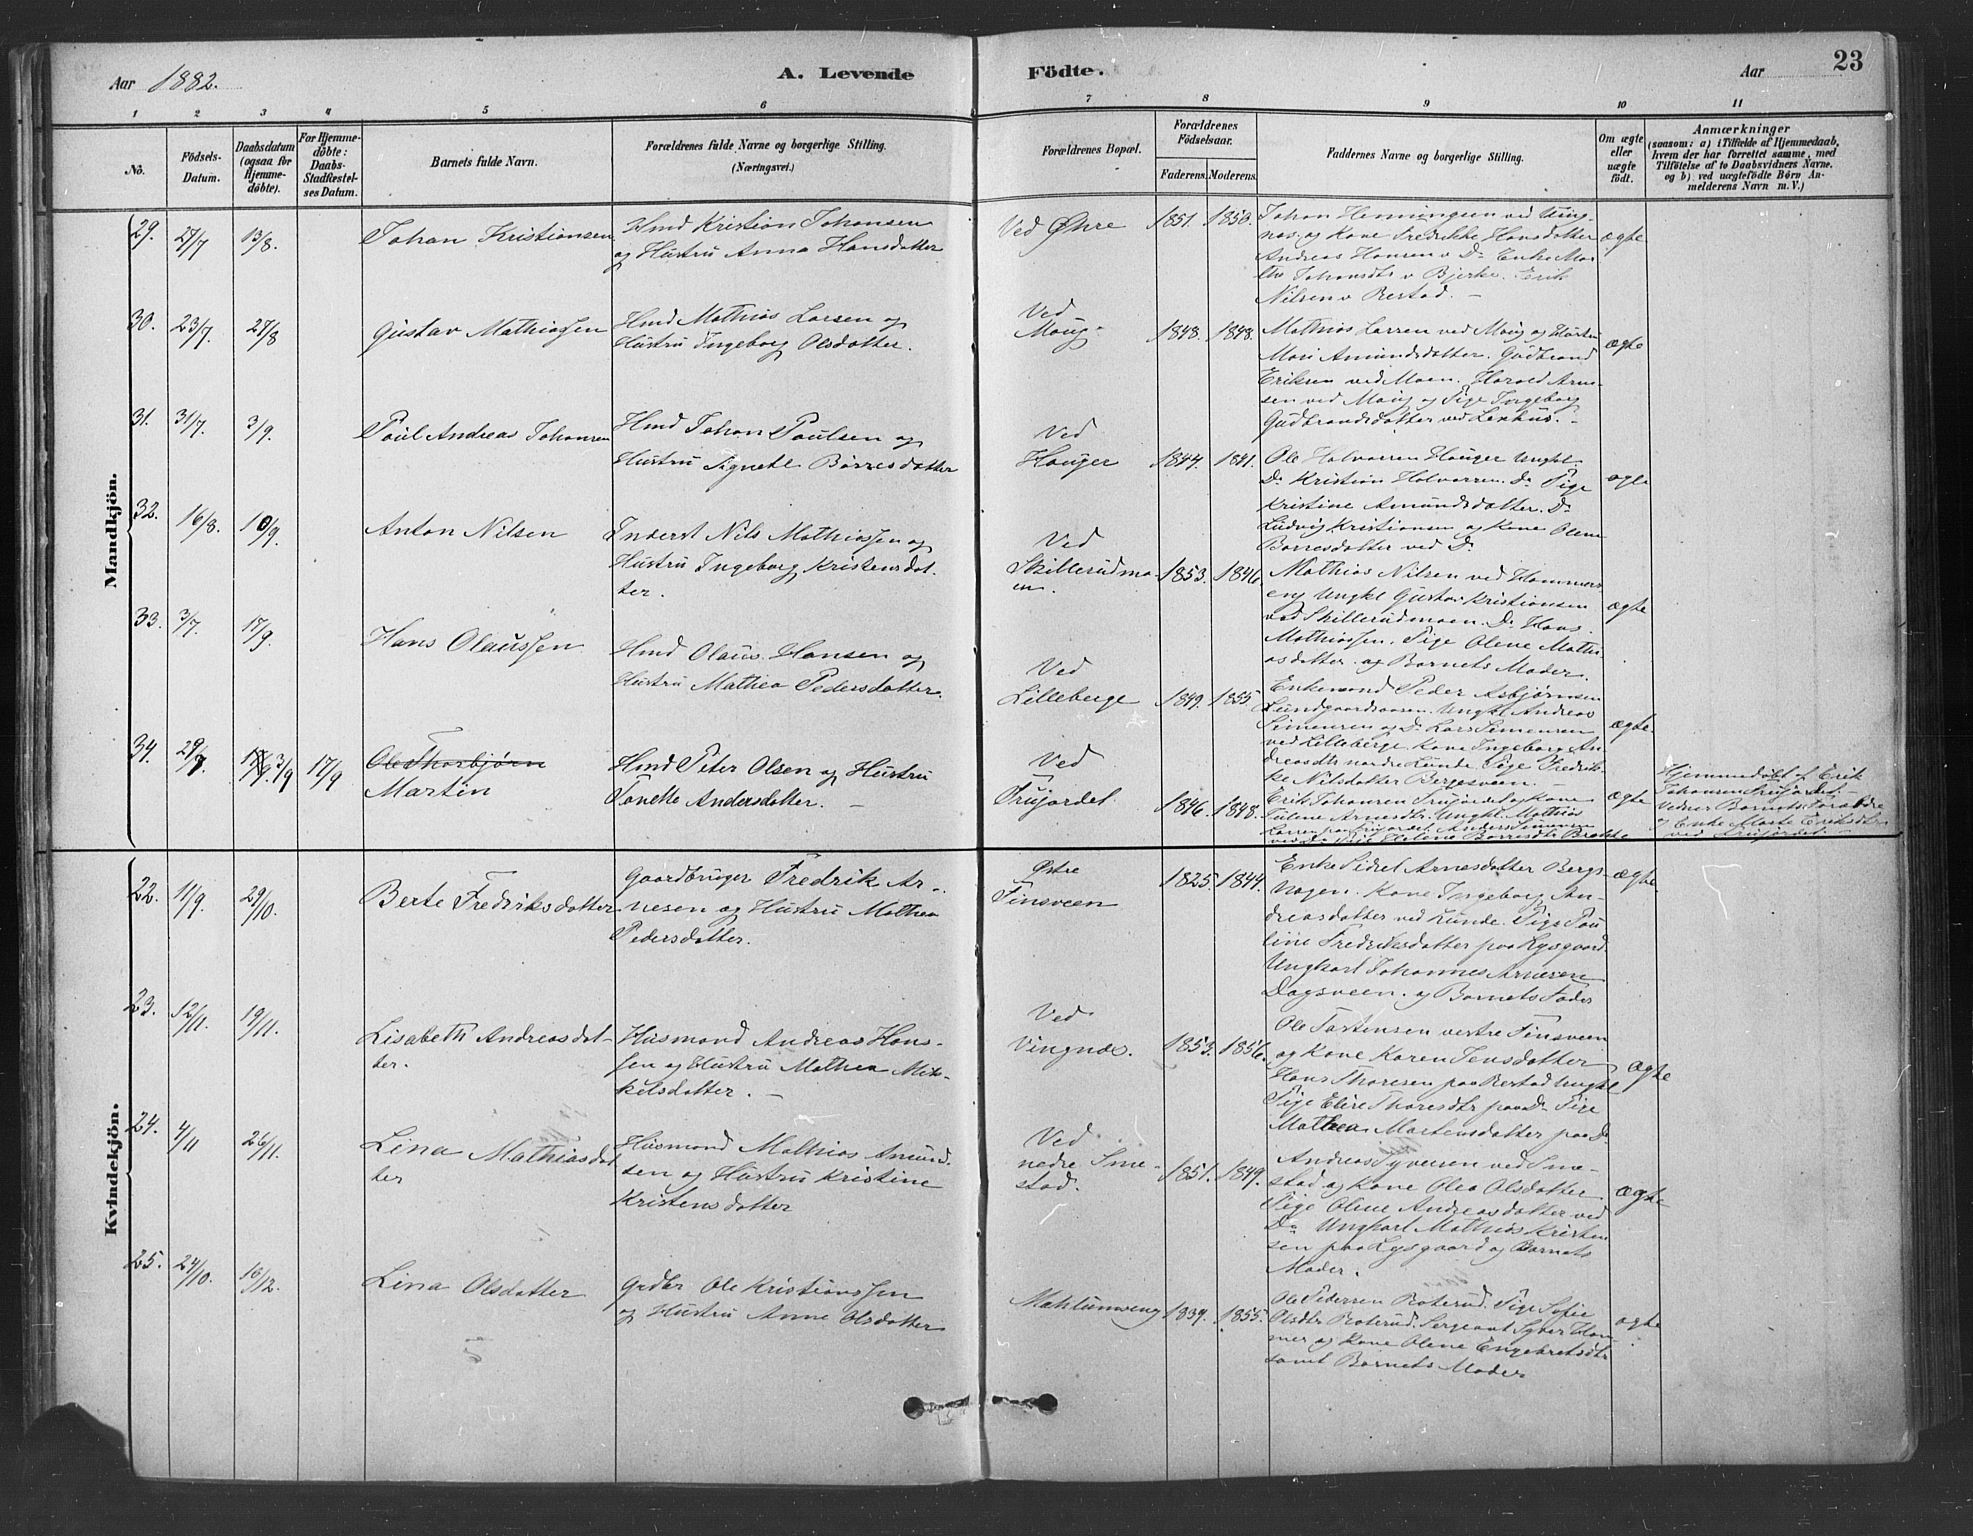 Aar 1882.
A. Levende
Födte.
Aar
23
1 2 3 4 5 6 7 8 9 10 11
No.
Födsels-
Datum.
Daabsdatum
(ogsaa for
Hjemme-
döbte).
For Hjemme-
döbte:
Daabs-
Stadfæstel-
ses Datum.
Barnets fulde Navn.
Forældrenes fulde Navne og borgerlige Stilling.
(Næringsvei.)
Forældrenes Bopæl.
Forældrenes
Födselsaar.
Faderens. Moderens.
Faddernes Navne og borgerlige Stilling.
Om ægte
eller
uægte
födt.
Anmærkninger
(saasom: a) i Tilfælde af Hjemmedaab,
hvem der har forrettet samme, med
Tilföielse af to Daabsvidners Navne.
og b) ved uægtefödte Börn An-
melderens Navn m. V.)
Mandkjön.
29. 27/7 13/8. Johan Kristiansen
Hmd Kristian Johansen
og Hustru Anna Hansdatter
Ved Øhre 1851. 1850.
Johan Henningsen ved Ving-
næs og Kone Fredrikke Hansdatter
Andreas Hansen v Do Enke Mar-
the Johansdtr v Bjerke. Erik
Nilsen v Restad. —
ægte
30. 23/7. 27/8 Gustav Mathiassen
Hmd Mathias Larsen og
Hustru Ingeborg Olsdatter.
Ved
Moug 1848. 1848.
Mathias Larsen ved Moug og Hustru
Mari Amundsdatter. Gudbrand
Eriksen ved Moen. Harald Arne-
sen ved Moug og Pige Ingeborg
Gudbrandsdatter ved Lexhus. —
ægte
31. 31/7. 3/9. Paul Andreas Johansen
Hmd Johan Paulsen og
Hustru Signete Børresdatter
Ved
Hauger 1844. 1841.
Ole Halvorsen Hauger Ungkl
Do Kristian Halvorsen. Do Pige
Kristine Amundsdatter. Do
Ludvig Kristiansen og Kone Olene
Børresdatter ved Do
ægte
32. 16/8. 10/9. Anton Nilsen
Inderst Nils Mathiassen og
Hustru Ingeborg Kristensdat-
ter.
Ved
Skillerudmo-
en. 1853. 1846.
Mathias Nilsen ved Hammers-
eng Ungkl Gustav Kristiansen
ved Skillerudmoen. Do Hans
Mathiassen. Pige Olene Mathi-
asdatter og Barnets Moder.
ægte
33. 3/7. 17/9. Hans Olaussen
Hmd Olaus Hansen og
Hustru Mathea Pedersdatter.
Ved
Lilleberge 1849. 1855.
Enkemand Peder Asbjørnsen
Lundgaardsaasen. Ungkl Andreas
Simensen og Do Lars Simensen
ved Lilleberge. Kone Ingeborg An-
dreasdtr nordre Lunde. Pige Fredrik-
ke Nilsdatter Bergesveen. —
ægte
34. 29/7. 3/9 17/9 Ole Thorbjørn
Martin
Hmd Peter Olsen og Hustru
Tonette Andersdatter. —
Ved
Frujordet 1846. 1848.
Erik Johansen Frujordet og Kone
Arnesdtr. Ungkl. Mathias
Larsen paa Frujordet. Anders Simensen
ægte
Hjemmedøbt af Erik
Johansen Frujordet —
Vidner Barnets Forældre
og Enke Marte Eriksdtr
ved Frujordet —
Kvindekjön.
22. 11/9. 29/10. Berte Fredriksdatter
Gaardbruger Fredrik Ar-
nesen og Hustru Mathea
Pedersdatter.
Østre
Finsveen 1825. 1844.
Enke Sidsel Arnesdatter Bergs-
hagen. Kone Ingeborg An-
dreasdatter ved Lunde. Pige Pau-
line Fredriksdatter paa Lysgaard.
Ungkarl Johannes Arnesen
Dagsveen. og Barnets Fader
ægte
23. 12/11. 19/11. Lisabeth Andreasdat-
ter.
Husmand Andreas Han-
sen og Hustru Mathea Mik-
kelsdatter. —
Ved
Vingnæs. 1853. 1856.
Ole Tostensen vestre Finsveen
og Kone Karen Jensdatter
Hans Thoresen paa Restad Ungkl
Pige Elise Thoresdtr paa Do Pige
Mathea Martensdatter paa Do
ægte
24. 4/11 26/11. Lina Mathiasdat
ter
Husmand Mathias Amund-
sen og Hustru Kristine
Kristensdatter
Ved
nedre Sme-
stad. 1851. 1849.
Andreas Syversen ved Sme-
stad og Kone Olea Olsdatter
Pige Olene Andreasdatter ved
Do Ungkarl Mathias Kristen
sen paa Lysgaard og Barnets
Moder.
ægte
25. 24/10. 10/12. Lina Olsdatter
Gdbr Ole Kristianssen
og Hustru Anne Olsdatter
Mehlumseng 1839. 1855.
Ole Pedersen Roterud. Pige Sofie
Olsdtr Roterud. Sergeant Syver Ham-
mer og Kone Olene Engebretsdtr
samt Barnets Moder
ægte